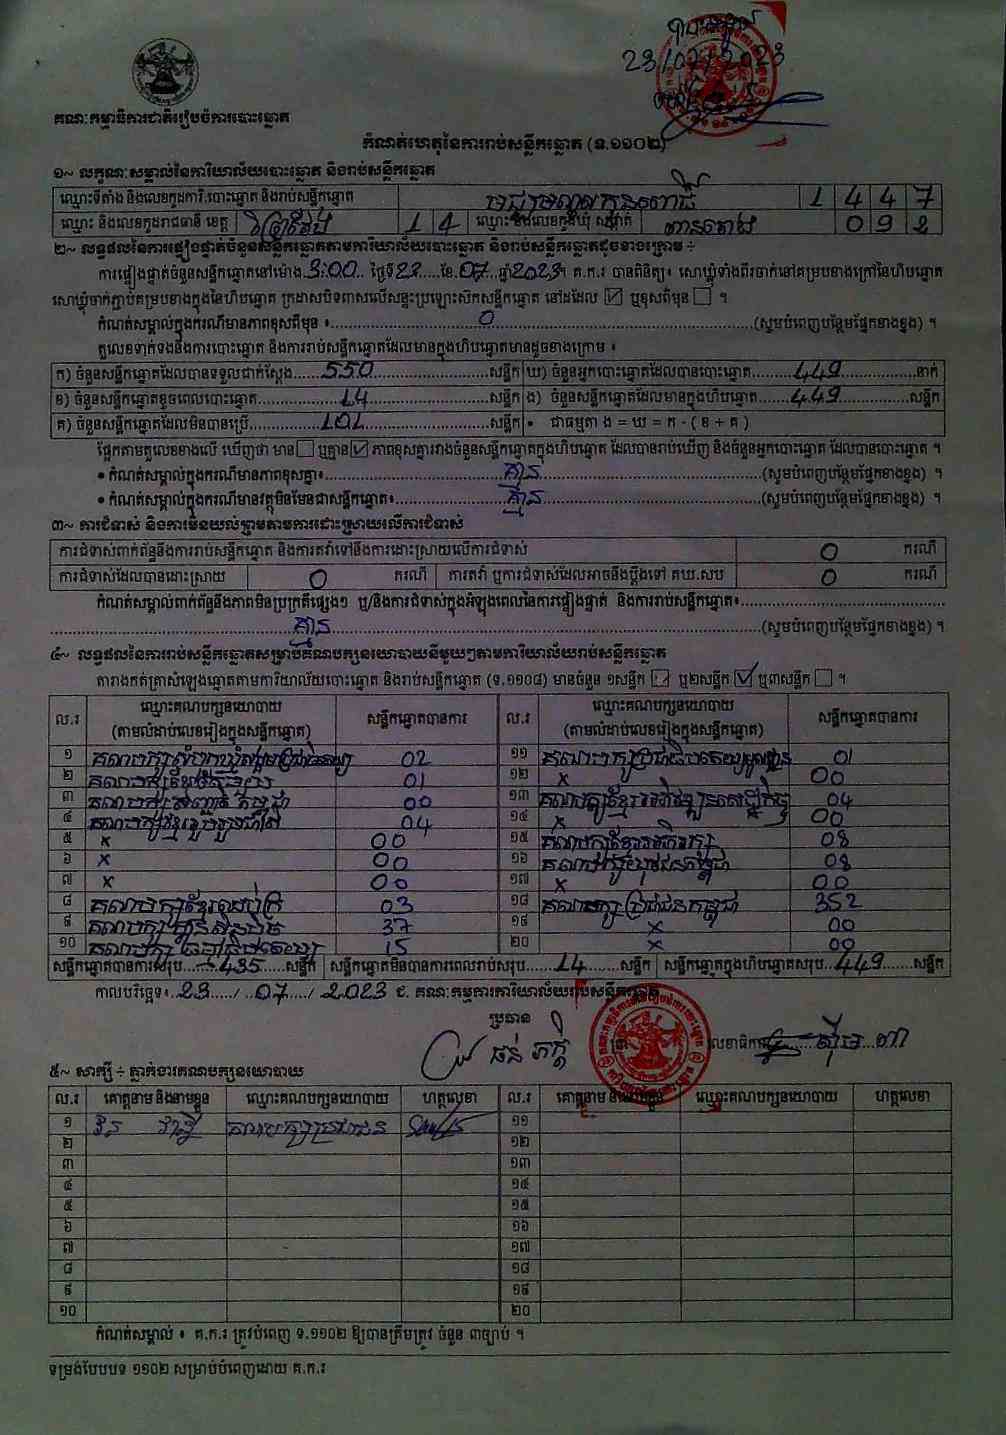 បានឃើញ
23/07/2023
គណៈកម្មាធិការជាតិរៀបចំការបោះឆ្នោត
កំណត់ហេតុនៃការរាប់សន្លឹកឆ្នោត (ទ.១១០២)
១~ លក្ខណៈសម្គាល់នៃការិយាល័យបោះឆ្នោត និងរាប់សន្លឹកឆ្នោត
ឈ្មោះទីតាំង និងលេខកូដការិ.បោះឆ្នោត និងរាប់សន្លឹកឆ្នោត 1 4 4 7
ឈ្មោះ និងលេខកូដរាជធានី ខេត្ត ព្រៃវែង 1 4 ឈ្មោះ និងលេខកូដឃុំ សង្កាត់ 0 9 2
២~ លទ្ធផលនៃការផ្ទៀងផ្ទាត់ចំនួនសន្លឹកឆ្នោតតាមការិយាល័យបោះឆ្នោត និងរាប់សន្លឹកឆ្នោតដូចខាងក្រោម ÷
ការផ្ទៀងផ្ទាត់ចំនួនសន្លឹកឆ្នោតនៅម៉ោង.3:00.. ថ្ងៃទី23.....ខែ.07...ឆ្នាំ2023។ គ.ក.រ បានពិនិត្យ៖ សោឃ្លុំទាំងពីរចាក់នៅគម្របខាងក្រៅនៃហិបឆ្នោត
សោឃ្លុំចាក់ភ្ជាប់គម្របខាងក្នុងនៃហិបឆ្នោត ក្រដាសបិទពាសលើសន្ទះប្រឡោះសឹកសន្លឹកឆ្នោត នៅដដែល ☑ ឬខុសពីមុន ☐ ។
កំណត់សម្គាល់ក្នុងករណីមានភាពខុសពីមុន ៖ 0 (សូមបំពេញបន្ថែមផ្នែកខាងខ្នង) ។
តួលេខទាក់ទងនឹងការបោះឆ្នោត និងការរាប់សន្លឹកឆ្នោតដែលមានក្នុងហិបឆ្នោតមានដូចខាងក្រោម ៖
ក) ចំនួនសន្លឹកឆ្នោតដែលបានទទួលជាក់ស្តែង.......550.......សន្លឹក ឃ) ចំនួនអ្នកបោះឆ្នោតដែលបានបោះឆ្នោត.......449.......នាក់
ខ) ចំនួនសន្លឹកឆ្នោតខូចពេលបោះឆ្នោត.......14.......សន្លឹក ង) ចំនួនសន្លឹកឆ្នោតដែលមានក្នុងហិបឆ្នោត.......449.......សន្លឹក
គ) ចំនួនសន្លឹកឆ្នោតដែលមិនបានប្រើ.......101.......សន្លឹក • ជាធម្មតា ង = ឃ = ក - ( ខ + គ )
ផ្អែកតាមតួលេខខាងលើ ឃើញថា មាន ☐ ឬគ្មាន ☑ ភាពខុសគ្នារវាងចំនួនសន្លឹកឆ្នោតក្នុងហិបឆ្នោត ដែលបានរាប់ឃើញ និងចំនួនអ្នកបោះឆ្នោត ដែលបានបោះឆ្នោត ។
• កំណត់សម្គាល់ក្នុងករណីមានភាពខុសគ្នា៖ គ្មាន (សូមបំពេញបន្ថែមផ្នែកខាងខ្នង) ។
• កំណត់សម្គាល់ក្នុងករណីមានវត្ថុមិនមែនជាសន្លឹកឆ្នោត៖ គ្មាន (សូមបំពេញបន្ថែមផ្នែកខាងខ្នង) ។
៣~ ការជំទាស់ និងការមិនយល់ព្រមតាមការដោះស្រាយលើការជំទាស់
ការជំទាស់ពាក់ព័ន្ធនឹងការរាប់សន្លឹកឆ្នោត និងការតវ៉ាទៅនឹងការដោះស្រាយលើការជំទាស់ 0 ករណី
ការជំទាស់ដែលបានដោះស្រាយ 0 ករណី ការតវ៉ា ឬការជំទាស់ដែលអាចនឹងប្តឹងទៅ គឃ.សប 0 ករណី
កំណត់សម្គាល់ពាក់ព័ន្ធនឹងភាពមិនប្រក្រតីផ្សេងៗ ឬ/និងការជំទាស់ក្នុងអំឡុងពេលនៃការផ្ទៀងផ្ទាត់ និងការរាប់សន្លឹកឆ្នោត៖
គ្មាន (សូមបំពេញបន្ថែមផ្នែកខាងខ្នង) ។
៤~ លទ្ធផលនៃការរាប់សន្លឹកឆ្នោតសម្រាប់គណបក្សនយោបាយនីមួយៗតាមការិយាល័យរាប់សន្លឹកឆ្នោត
តារាងកត់ត្រាសំឡេងឆ្នោតតាមការិយាល័យបោះឆ្នោត និងរាប់សន្លឹកឆ្នោត (ទ.១១០៨) មានចំនួន ១សន្លឹក ☐ ឬ២សន្លឹក ☑ ឬ៣សន្លឹក ☐ ។
ល.រ ឈ្មោះគណបក្សនយោបាយ (តាមលំដាប់លេខរៀងក្នុងសន្លឹកឆ្នោត) សន្លឹកឆ្នោតបានការ ល.រ ឈ្មោះគណបក្សនយោបាយ (តាមលំដាប់លេខរៀងក្នុងសន្លឹកឆ្នោត) សន្លឹកឆ្នោតបានការ
១ គណបក្សសំបុកឃ្មុំសង្គមប្រជាធិបតេយ្យ 02 ១១ គណបក្សប្រជាធិបតេយ្យមូលដ្ឋាន 01
២ គណបក្សខ្មែរតែមួយ 01 ១២ x 00
៣ គណបក្ស កម្ពុជា 00 ១៣ គណបក្សខ្មែរអភិវឌ្ឍន៍សេដ្ឋកិច្ច 04
៤ គណបក្សខ្មែររួបរួមជាតិ 04 ១៤ x 00
៥ x 00 ១៥ គណបក្សខ្មែរអភិរក្ស 08
៦ x 00 ១៦ គណបក្សយុវជនកម្ពុជា 08
៧ x 00 ១៧ x 00
៨ គណបក្សខ្មែរឈប់ក្រ 03 ១៨ គណបក្សប្រជាជនកម្ពុជា 352
៩ គណបក្សហ៊្វុនស៊ិនប៉ិច 37 ១៩ x 00
១០ គណបក្ស ធម្មាធិបតេយ្យ 15 ២០ x 00
សន្លឹកឆ្នោតបានការសរុប.......435.......សន្លឹក សន្លឹកឆ្នោតមិនបានការពេលរាប់សរុប.......14.......សន្លឹក សន្លឹកឆ្នោតក្នុងហិបឆ្នោតសរុប..449.......សន្លឹក
កាលបរិច្ឆេទ៖..23...../...07..../..2023 ជ. គណៈកម្មការការិយាល័យរាប់សន្លឹកឆ្នោត
ប្រធាន
ឆន់ ភក្តី លេខាធិការ ស៊ីម
៥~ សាក្សី ÷ ភ្នាក់ងារគណបក្សនយោបាយ
ល.រ គោត្តនាម និងនាមខ្លួន ឈ្មោះគណបក្សនយោបាយ ហត្ថលេខា ល.រ គោត្តនាម និងនាមខ្លួន ឈ្មោះគណបក្សនយោបាយ ហត្ថលេខា
១ គណបក្សប្រជាជន ១១
២ ១២
៣ ១៣
៤ ១៤
៥ ១៥
៦ ១៦
៧ ១៧
៨ ១៨
៩ ១៩
១០ ២០
កំណត់សម្គាល់ ៖ គ.ក.រ ត្រូវបំពេញ ទ.១១០២ ឱ្យបានត្រឹមត្រូវ ចំនួន ៣ច្បាប់ ។
ទម្រង់បែបបទ ១១០២ សម្រាប់បំពេញដោយ គ.ក.រ